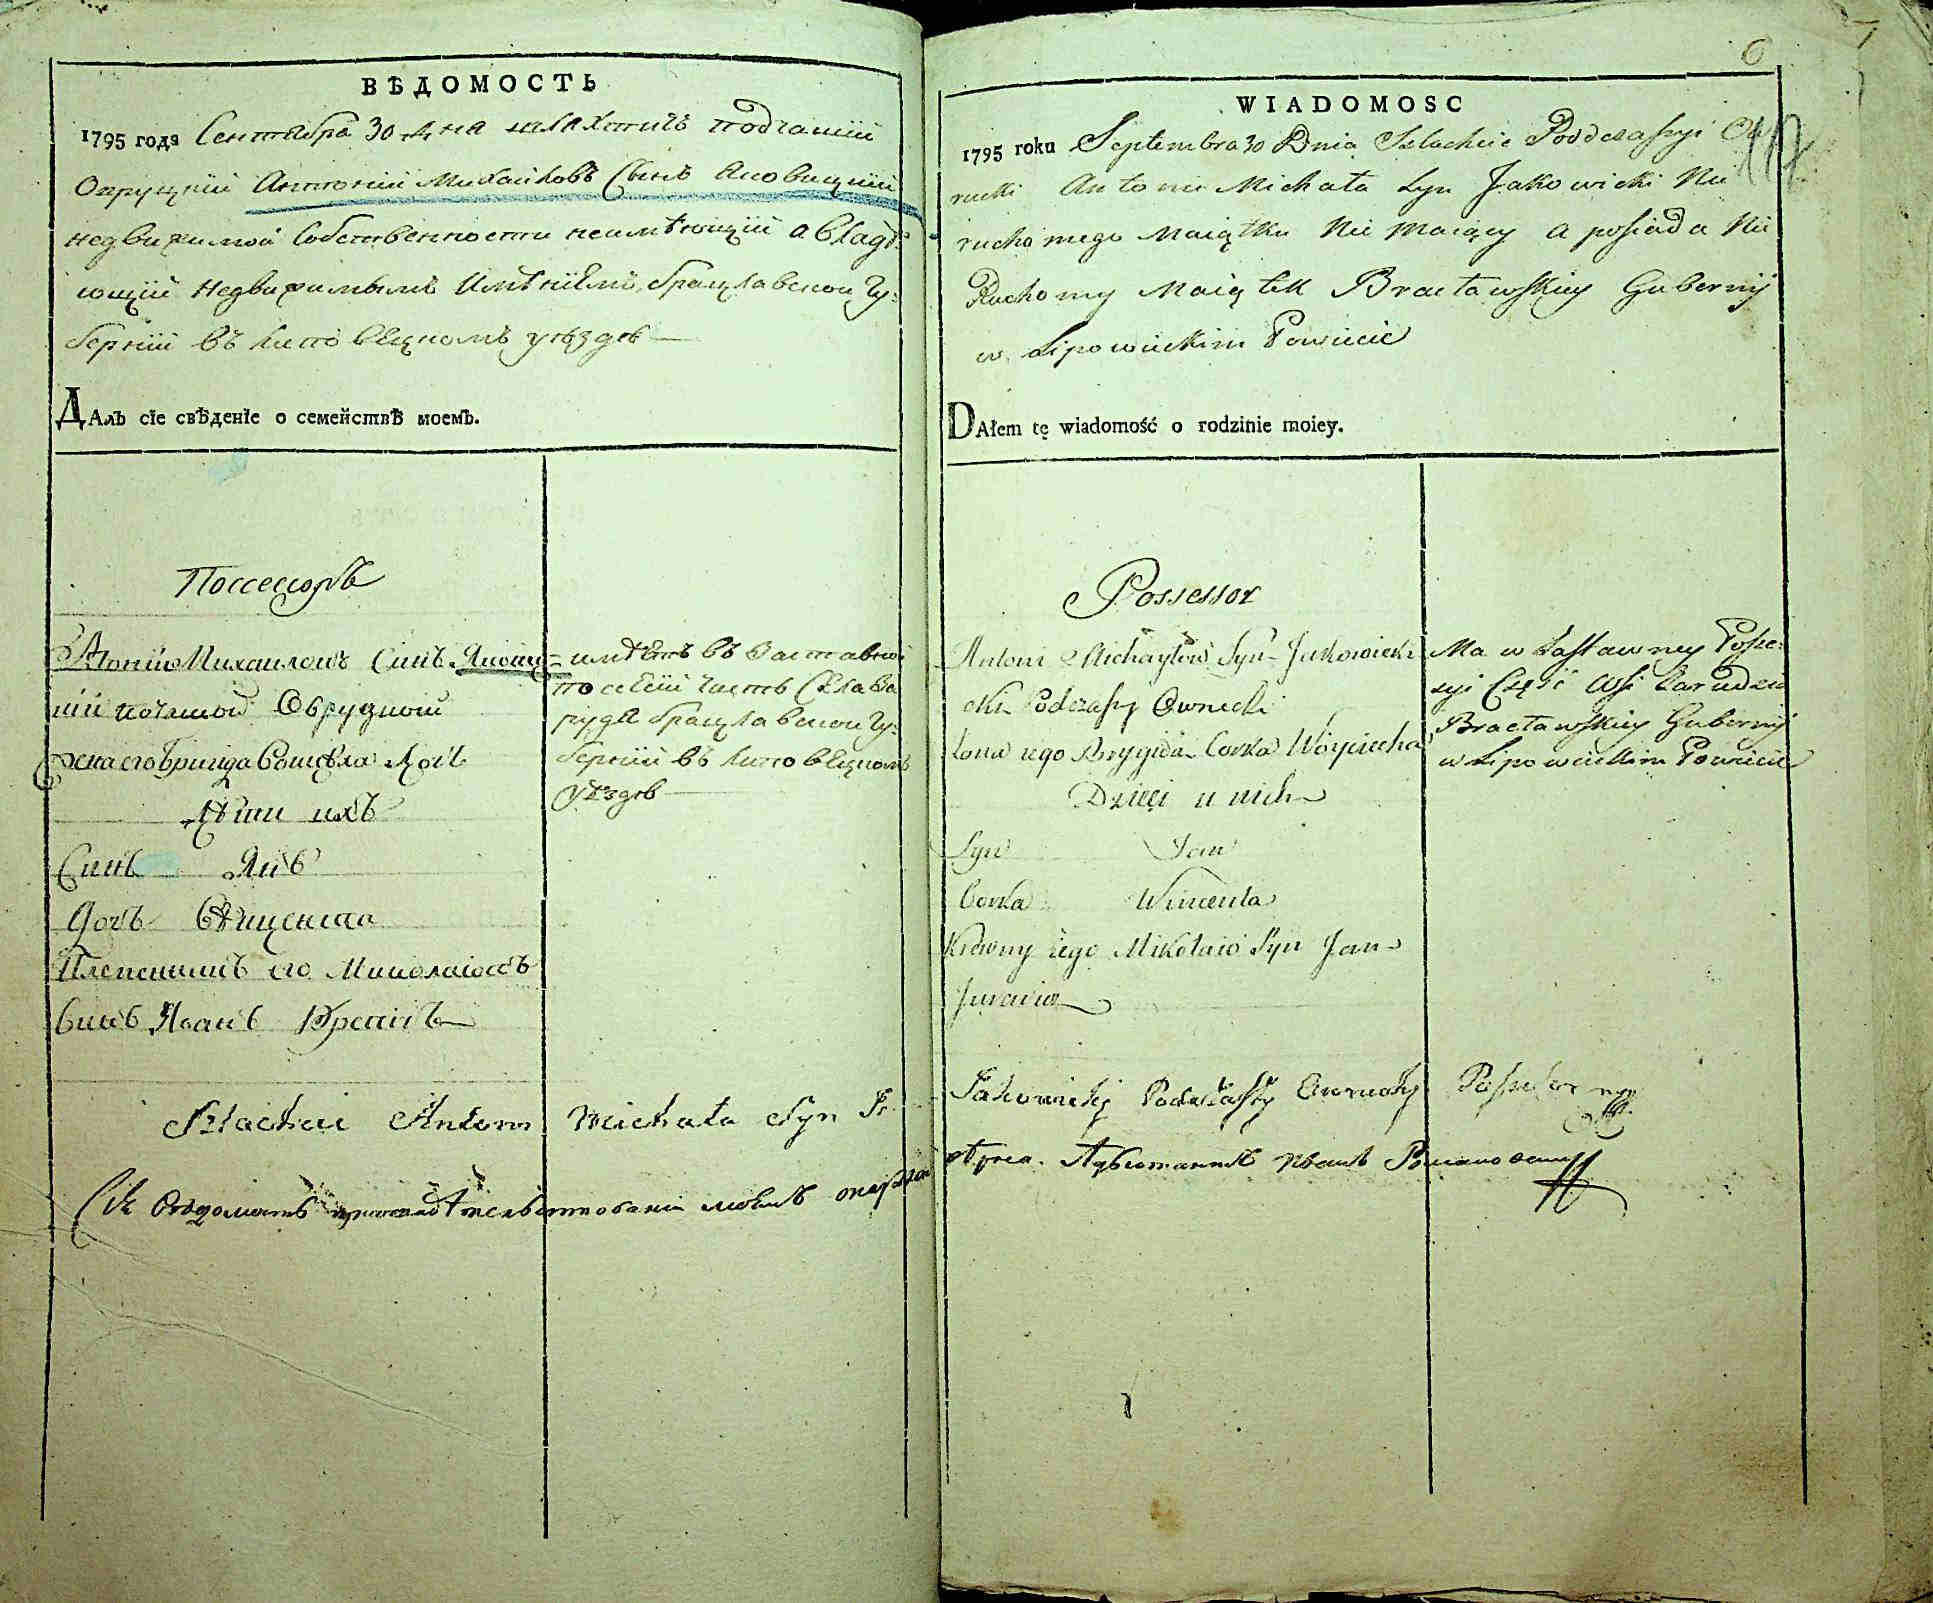 ВѢДОМОСТЬ
1795 года Сентября 30 Дня шляхтичь подчашій
Овруцкій Антоній Михайловъ Сынъ Яковицкій
недвижимой Собственности неимѣющій а владѣ:
ющій Недвижимымъ Имѣніемъ, брацлавской Гу:
берніи въ Липовецкомъ уѣздѣ
ДАлъ сіе свѣденіе о семействѣ моемъ.
Поссесоръ
Антоній Михаиловъ Синъ Яковиц=
кій Овруцкій
Жена его Бригида
Дѣти ихъ
Синъ Янъ
Дочь Вѣнцента
Племенникъ его Миколаіовъ
Синъ
имѣетъ въ Заставной
посесіи часть Села За
руды брацлавской Гу:
берніи въ Липовецкомъ
уѣздѣ
WIADOMOSC
6
117
1795 roku Septembra 30 Dnia Szlachcic Podczaszyi Ow
rucki Antoni Michała Syn Jakowicki Nie
ruchomego Maiątku Nie Maiący a posiada Nie
Ruchomy Maiątek Bracławskiey Gubernij
w Lipowieckim Powiecie
DAłem tę wiadomość o rodzinie moiey.
Possessor
Antoni Michayłow Syn Jakowicki
Podczaszy Owrucki
Żona iego Brygida Corka Woyciecha
Dzieci u nich
Syn Jan
Corka Wincenta
Krewny iego Mikołaio Syn Jan
Ma w Zastawney Posse:
syi Część Wsi Zarudziu
Bracławskiey Gubernij
w Lipowieckim Powiecie
Szlachcic Antoni Michała Syn Jakowicky Podczaszy Owrucky Possessor mpp
Сію Вѣдомость Иванъ